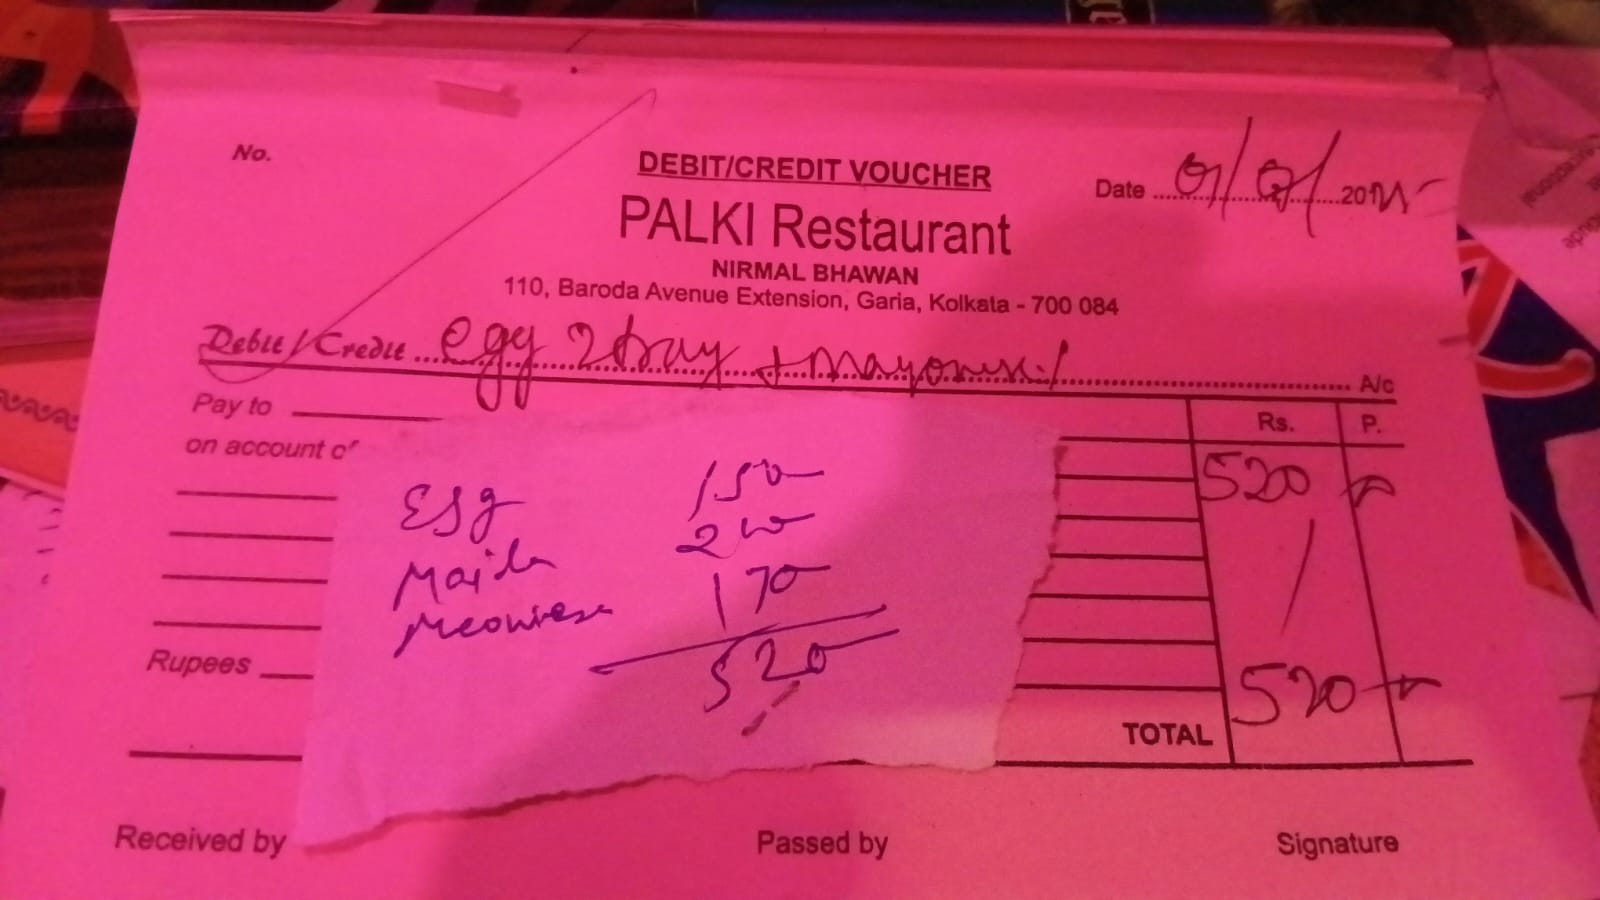 No.
DEBIT/CREDIT VOUCHER
Date
PALKI Restaurant
NIRMAL BHAWAN
110, Baroda Avenue Extension, Garia, Kolkata - 700 084
Debit/Credit egg 2 tray + A/c
Pay to
Rs. P.
on account of
520
Egg 150
200
170
520
Rupees
520
TOTAL
Received by Passed by Signature